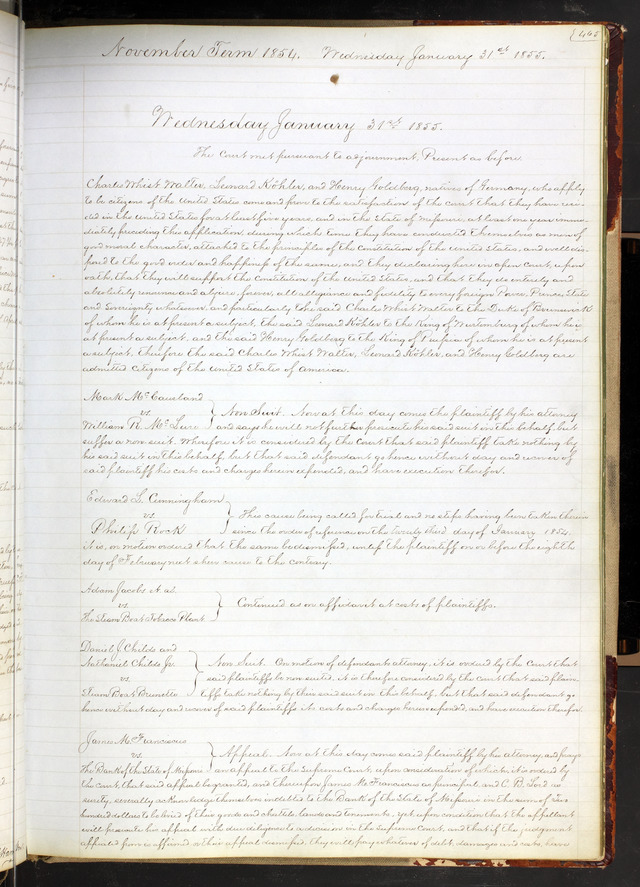 445
November Term 1854. Wednesday January 31st 1855.
Wednesday January 31st 1855.
The Court met pursuant to adjournment. Present as before.
Charles Whist Walter, Lenard Köhler, and Henry Goldberg, natives of Germany, who apply
to be citizens of the United States come and prove to the satisfaction of the court that they have resi-
ded in the United States for at least five years, and in the State of Missouri, at least one year imme-
diately preceding this application, during which time they have conducted themselves as men of
good moral character, attached to the principles of the Constitution of the United States, and well dis-
posed to the good order and happiness of the same, and they declaring here in open Court, upon
oath, that they will support the Constitution of the United States, and that they do entirely and
absolutely renounce and abjure forever, all allegiance and fidelity to every foreign Power, Prince, State
and Sovereignty whatsoever, and particularly the said Charles Whist Walter to the Duke of Brunswick
of whom he is at present a subject, the said Lenard Köhler to the King of Wurtemburg of whom he is
at present a subject, and the said Henry Goldberg to the King of Prussia of whom he is at present
a subject, therefore the said Charles Whist Walter, Lenard Köhler, and Henry Goldberg are
admitted citizens of the United States of America.
Mark McCausland
vs. Non Suit. Now at this day comes the plaintiff by his attorney
William R. McLure and says he will not further prosecute his said suit in this behalf but
suffer a non suit. Wherefore it is considered by the Court that said plaintiff take nothing by
his said suit in this behalf but that said defendant go hence without day and recover of
said plaintiff his costs and charges herein expended, and have execution therefor.
Edward L. Cunningham
vs. This cause being called for trial and no steps having been taken therein
Philip Rock since the order of reference on the twenty third day of January 1854.
it is, on motion ordered that the same be dismissed, unless the plaintiff on or before the eighth
day of February next shew cause to the contrary.
Adam Jacobs et al.
vs. Continued as on affidavit at costs of plaintiffs.
The Steam Boat Tobacco Plant
Daniel J Childs and
Nathaniel Childs Jr. Non Suit. On motion of defendants attorney, it is ordered by the Court that
vs. said plaintiffs be non suited. it is therefore considered by the Court that said plain-
Steam Boat Brunette tiffs take nothing by this said suit in this behalf, but that said defendant go
hence without day and recover of said plaintiffs its costs and charges herein expended, and have execution therefor.
James M Franciscus
vs. Appeal. Now at this day come said plaintiff by his attorney, and prays
The Bank of the State of Missouri an appeal to the Supreme Court, upon consideration of which, it is ordered by
the court, that said appeal be granted, and thereupon James M Franciscus as principal, and C. B. Lord as
surety, severally acknowledge themselves indebted to the Bank of the State of Missouri in the sum of six
hundred dollars to be levied of their goods and chattels lands and tenements, yet upon condition that the appellant
will prosecute his appeal with due diligence to a decision in the Supreme Court, and that if the judgment
appealed from be affirmed, or this appeal dismissed, they will pay whatever of debt, damages and costs, have